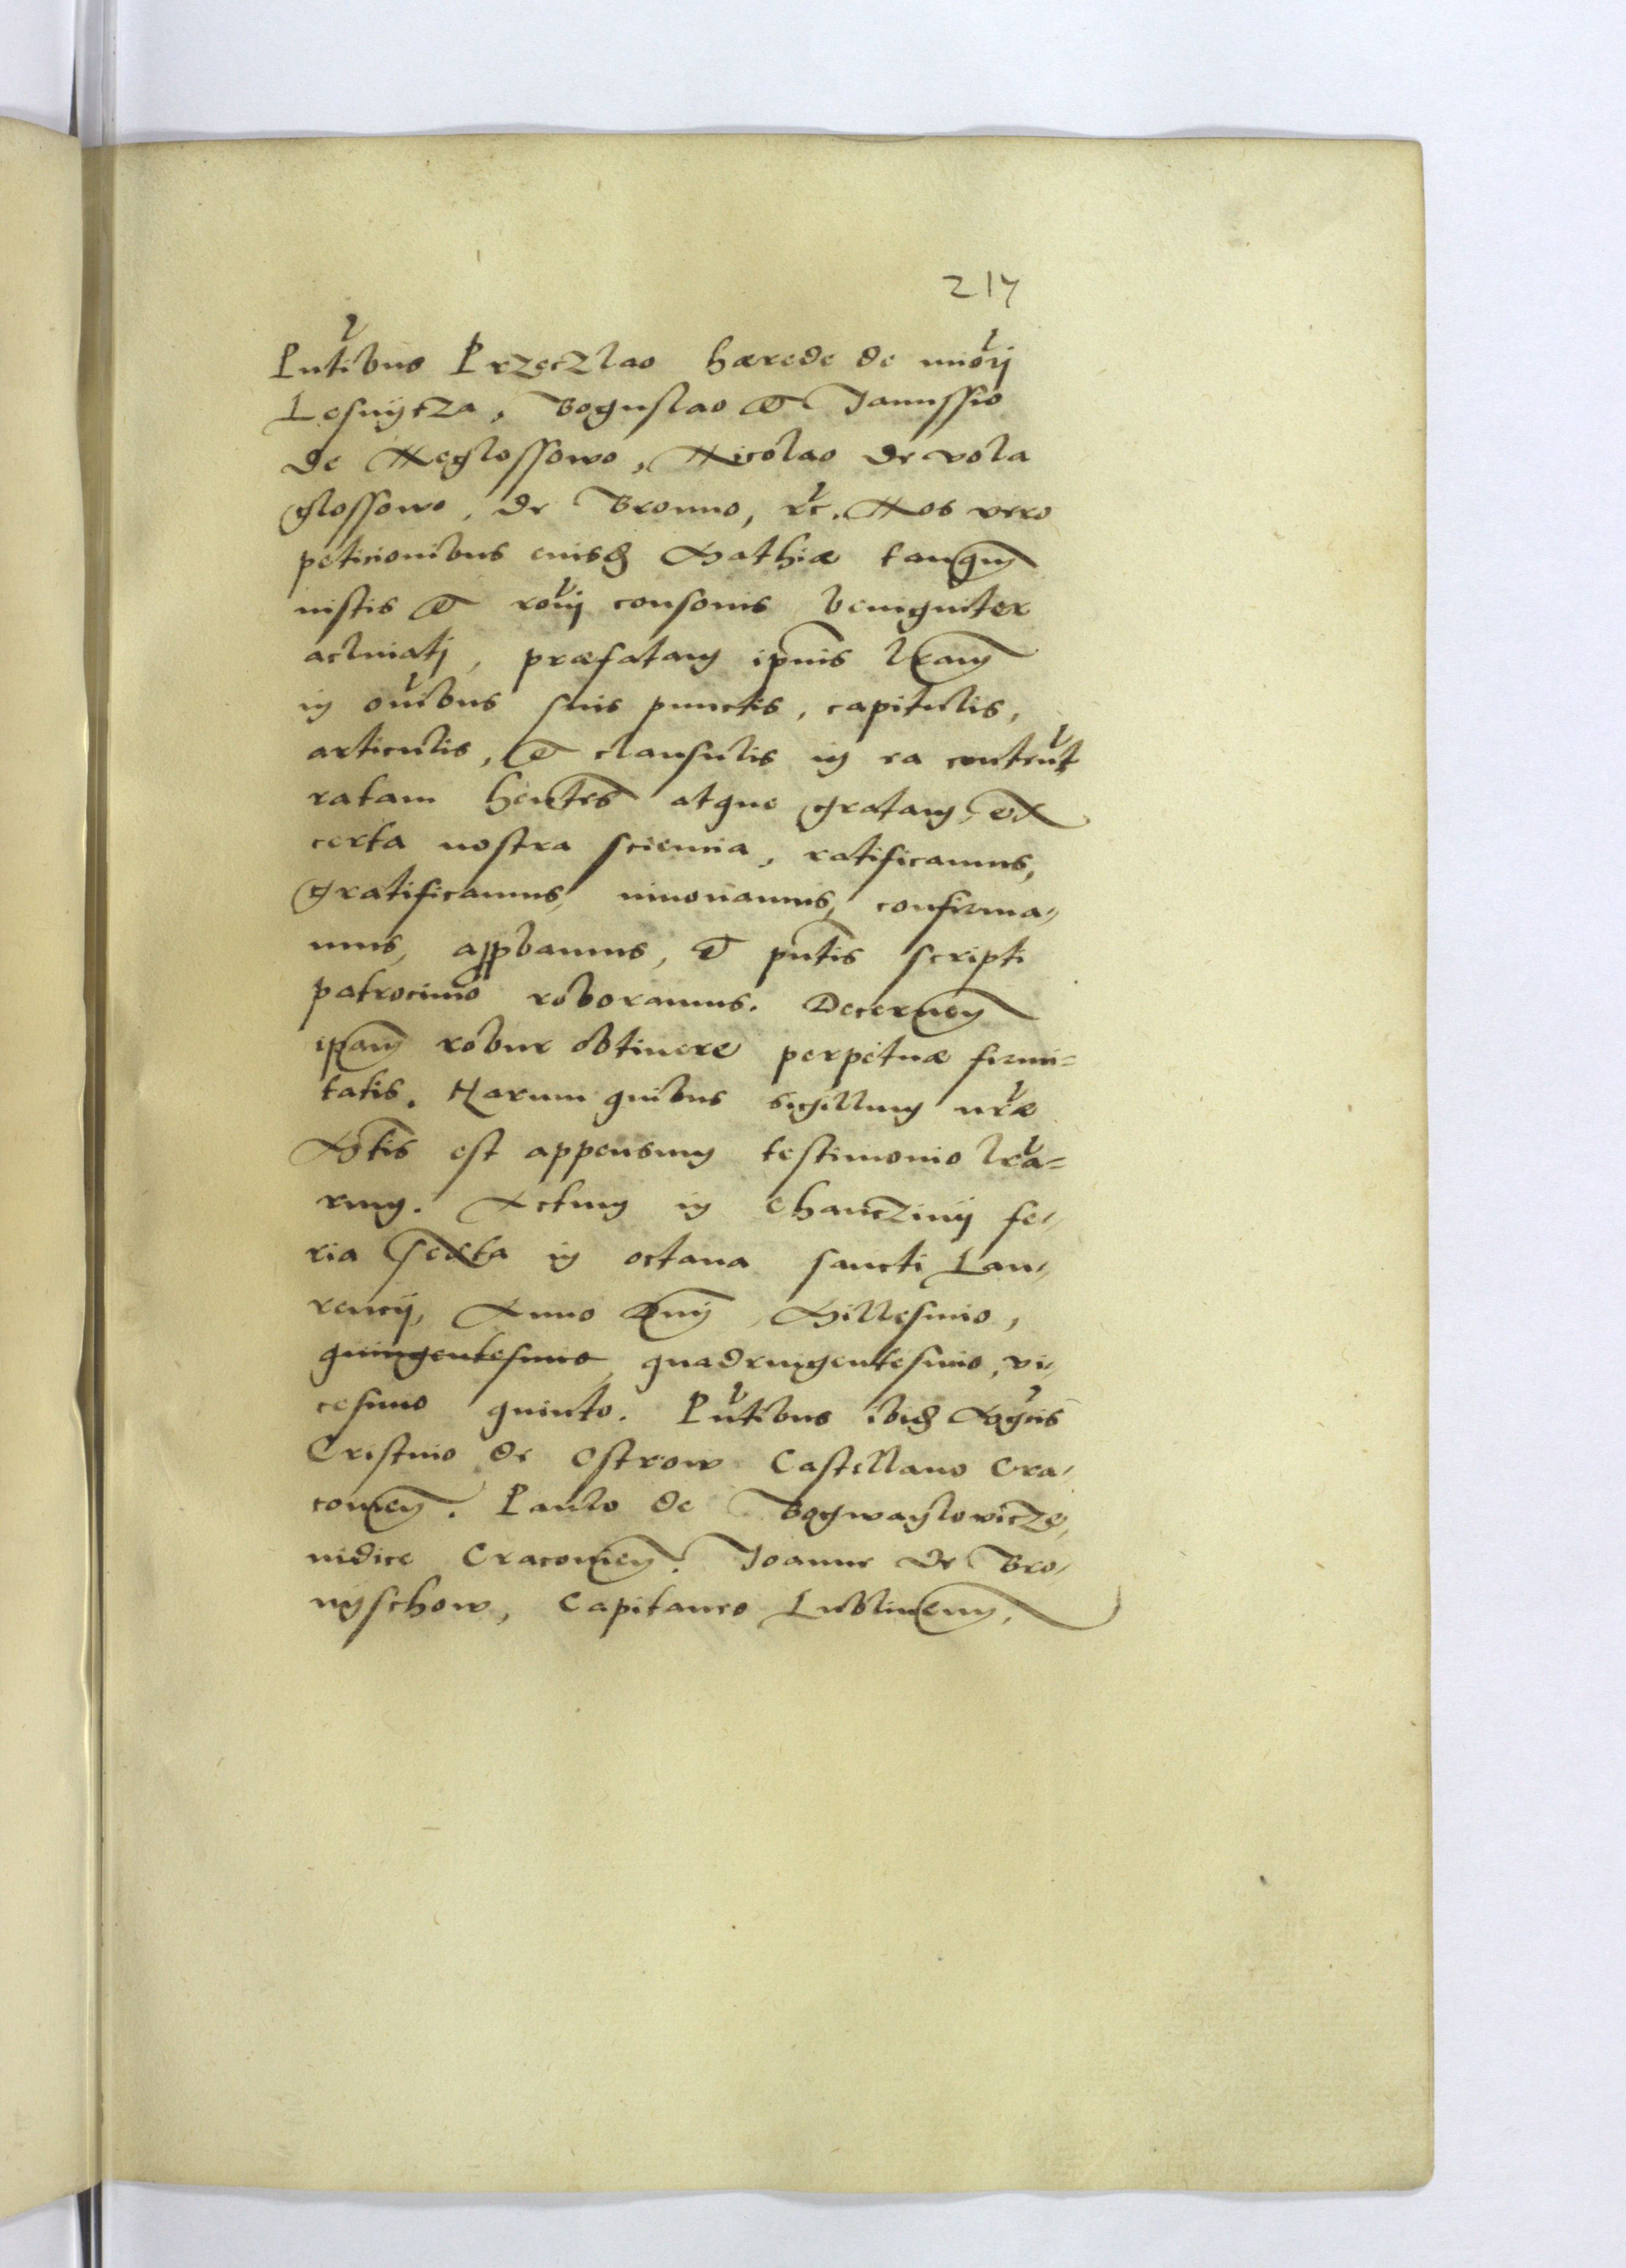 217
Pñtibus Przeczlao hærede de miõrj
Lesnytza, Boguslao & Janussio
de Neglossowo, Nicolao de vola
glossowo, de Bronno, &c. Nos vero
peticionibus eiusdẽ Mathiæ tanq̃m
iustis & rõni consonis benigniter
aclinatj, præfatam ipsius lrãm
in oĩbus suis punctis, capitulis,
articulis, & clausulis in ea contentꝭ
ratam hẽntes atque gratam, ex
certa nostra sciencia, ratificamus,
gratificamus, innouamus, confirma,,
mus, appbamus, & pñtis scripti
patrocinio roboramus. Decernen̄
ip̃am robur obtinere perpetuæ firmi=
tatis. Harum quibus sigillum nr̃æ
Mtis est appensum testimonio lrã=
rum. Actum in Chanczinij fe,,
ria sexta in octaua sancti Lau,,
rencij, Anno Dnj Millesimo,
quingentesimo quadringentesimo, vi,,
cesimo quinto. Pñtibus ibidẽ Mag̃cis
Cristino de Ostrow Castellano Cra,,
couien̄. Paulo de Bogwaylowicze,
iudice Cracouien̄. Joanne de Bro,,
nyschow, Capitaneo Lublinen̄,